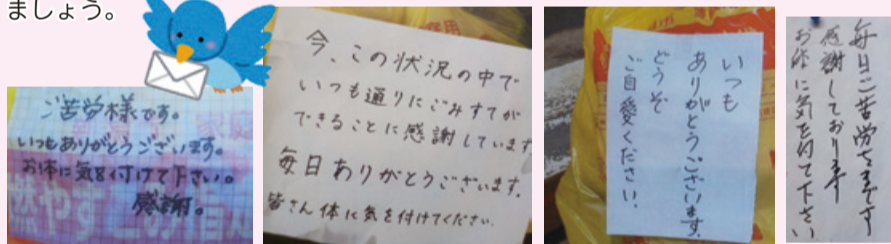 ましょう。
ご苦労様です。
いつもありがとうございます。
お体に気を付けて下さい。
感謝。
今、この状況の中で
いつも通りにごみすてが
できることに感謝しています
毎日ありがとうございます。
皆さん体に気を付けてください。
いつも
ありがとうございます。
どうぞ
ご自愛ください。
毎日ご苦労さまです
感謝しております
お体に気を付て下さい